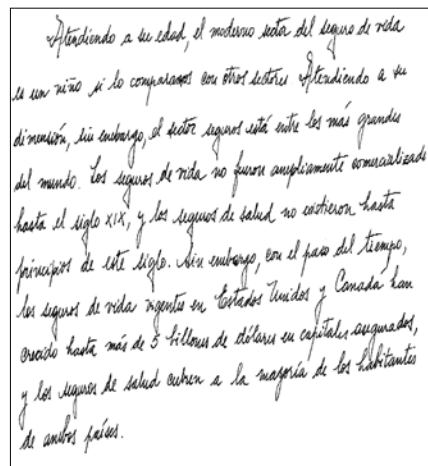 Atendiendo a su edad, el moderno sector del seguro de vida
es un niño si lo comparamos con otros sectores Atendiendo a su
dimensión, sin embargo, el sector seguros está entre los más grandes
del mundo. Los seguros de vida no fueron ampliamente comercializados
hasta el siglo XIX, y los seguros de salud no existieron hasta
principios de este siglo. Sin embargo, con el paso del tiempo,
los seguros de vida vigentes en Estados Unidos y Canadá han
crecido hasta más de 5 billones de dólares en capitales asegurados,
y los seguros de salud cubren a la mayoría de los habitantes
de ambos países.